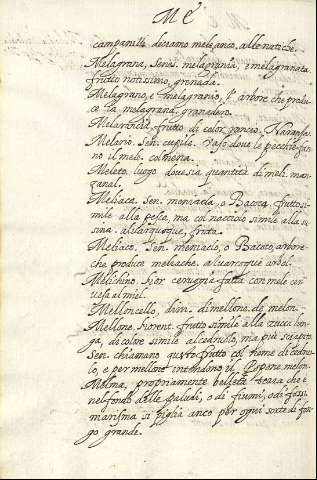 Me
campanilj deriamo melganco, alle natiche.
Melagrana, Senes. melagrania, e melagranata
frutto notissimo, grenada.
Melagrano, e melagranio, l' arbore che produ-
ce la melagrana, granedon.
Melarancia, frutto di color rancio, Naransa.
Melario. Sen. cupile. Vaso dove le pecchie fan-
no il mele. colmena.
Meleto, luogo dove sia quantità di meli. man-
zanal.
Meliaca. Sen. meniacla, o Bacoca, frutto si-
mile alla pesca, ma col nocciolo simile alla su-
sina. alvarquoque, fruta.
Meliaco. Sen. meniaclo, o Bacoco, arbore
che produce meliache. alvarcoque arbol.
Melichino. Fior. cervogia fatta con mele cer-
vesa al miel.
Melloncello, dim. di mellone. de melon.
Mellone, Fiorent. frutto simile alla zucca lon-
ga, di colore simile al cedruolo, ma più sciapito
Sen. chiamano questo frutto col nome di cedruo-
lo, e per mellone intendino il Popone. melon.
Melma, propriamente belletta terra che è
nel fondo delle paludi, o di fiumi, o di fossi
marisma si piglia anco per ogni sorte di fan-
go grande.